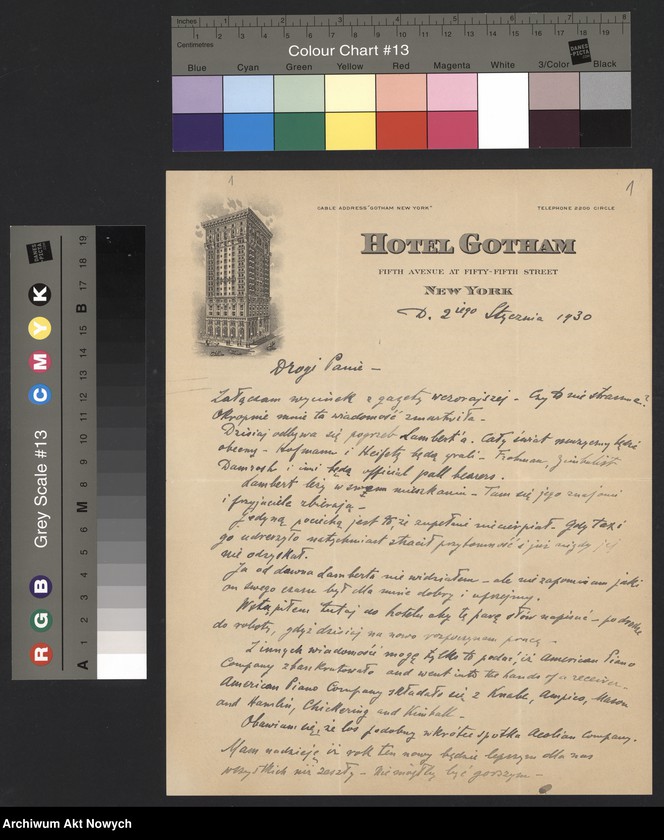 Inches 1 2 3 4 5 6 7 8
Centimetres 1 2 3 4 5 6 7 8 9 10 11 12 13 14 15 16 17 18 19
Colour Chart #13
DANES PICTA .COM
Blue Cyan Green Yellow Red Magenta White 3/Color Black
1 1
CABLE ADDRESS "GOTHAM NEW YORK" TELEPHONE 2200 CIRCLE
HOTEL GOTHAM
FIFTH AVENUE AT FIFTY-FIFTH STREET
NEW YORK
D. 2iego Stycznia 1930
Drogi Panie –
Załączam wycinek z gazety wczorajszej – Czy to nie straszne?
Okropnie mnie ta wiadomość zmartwiła –
Dzisiaj odbywa się pogrzeb Lambert'a. Cały świat muzyczny będzie
obecny – Hofmann i Heifetz będą grali – Frohman, Zimbalist
Damrosh i inni będą official pall bearers.
Lambert leży w swoem mieszkaniu – Tam się jego znajomi
i przyjaciele zbierają –
Jedyną pociechą jest to że zupełnie nie cierpiał. Gdy taxi
go uderzyło natychmiast stracił przytomność i już nigdy jej
nie odzyskał.
Ja od dawna Lamberta nie widziałem – ale nie zapominam jaki
on swego czasu był dla mnie dobry i uprzejmy.
Wstąpiłem tutaj do hotelu aby tę parę słów napisać – po drodze
do roboty, gdyż dzisiaj na nowo rozpoczynam pracę –
Z innych wiadomości mogę tylko to podać, iż American Piano
Company zbankrutowało and went into the hands of a receiver –
American Piano Company składało się z Knabe, Ampico, Mason
and Hamlin, Chickering and Kimball –
Obawiam się, że los podobny wkrótce spotka Aeolian Company.
Mam nadzieję iż rok ten nowy będzie lepszym dla nas
wszystkich niż zeszły – Nie mógłby być gorszym –
Grey Scale #13
R G B C M Y K
DANES PICTA .COM
A 1 2 3 4 5 6 M 7 8 9 10 11 12 13 14 15 B 16 17 18 19
Archiwum Akt Nowych